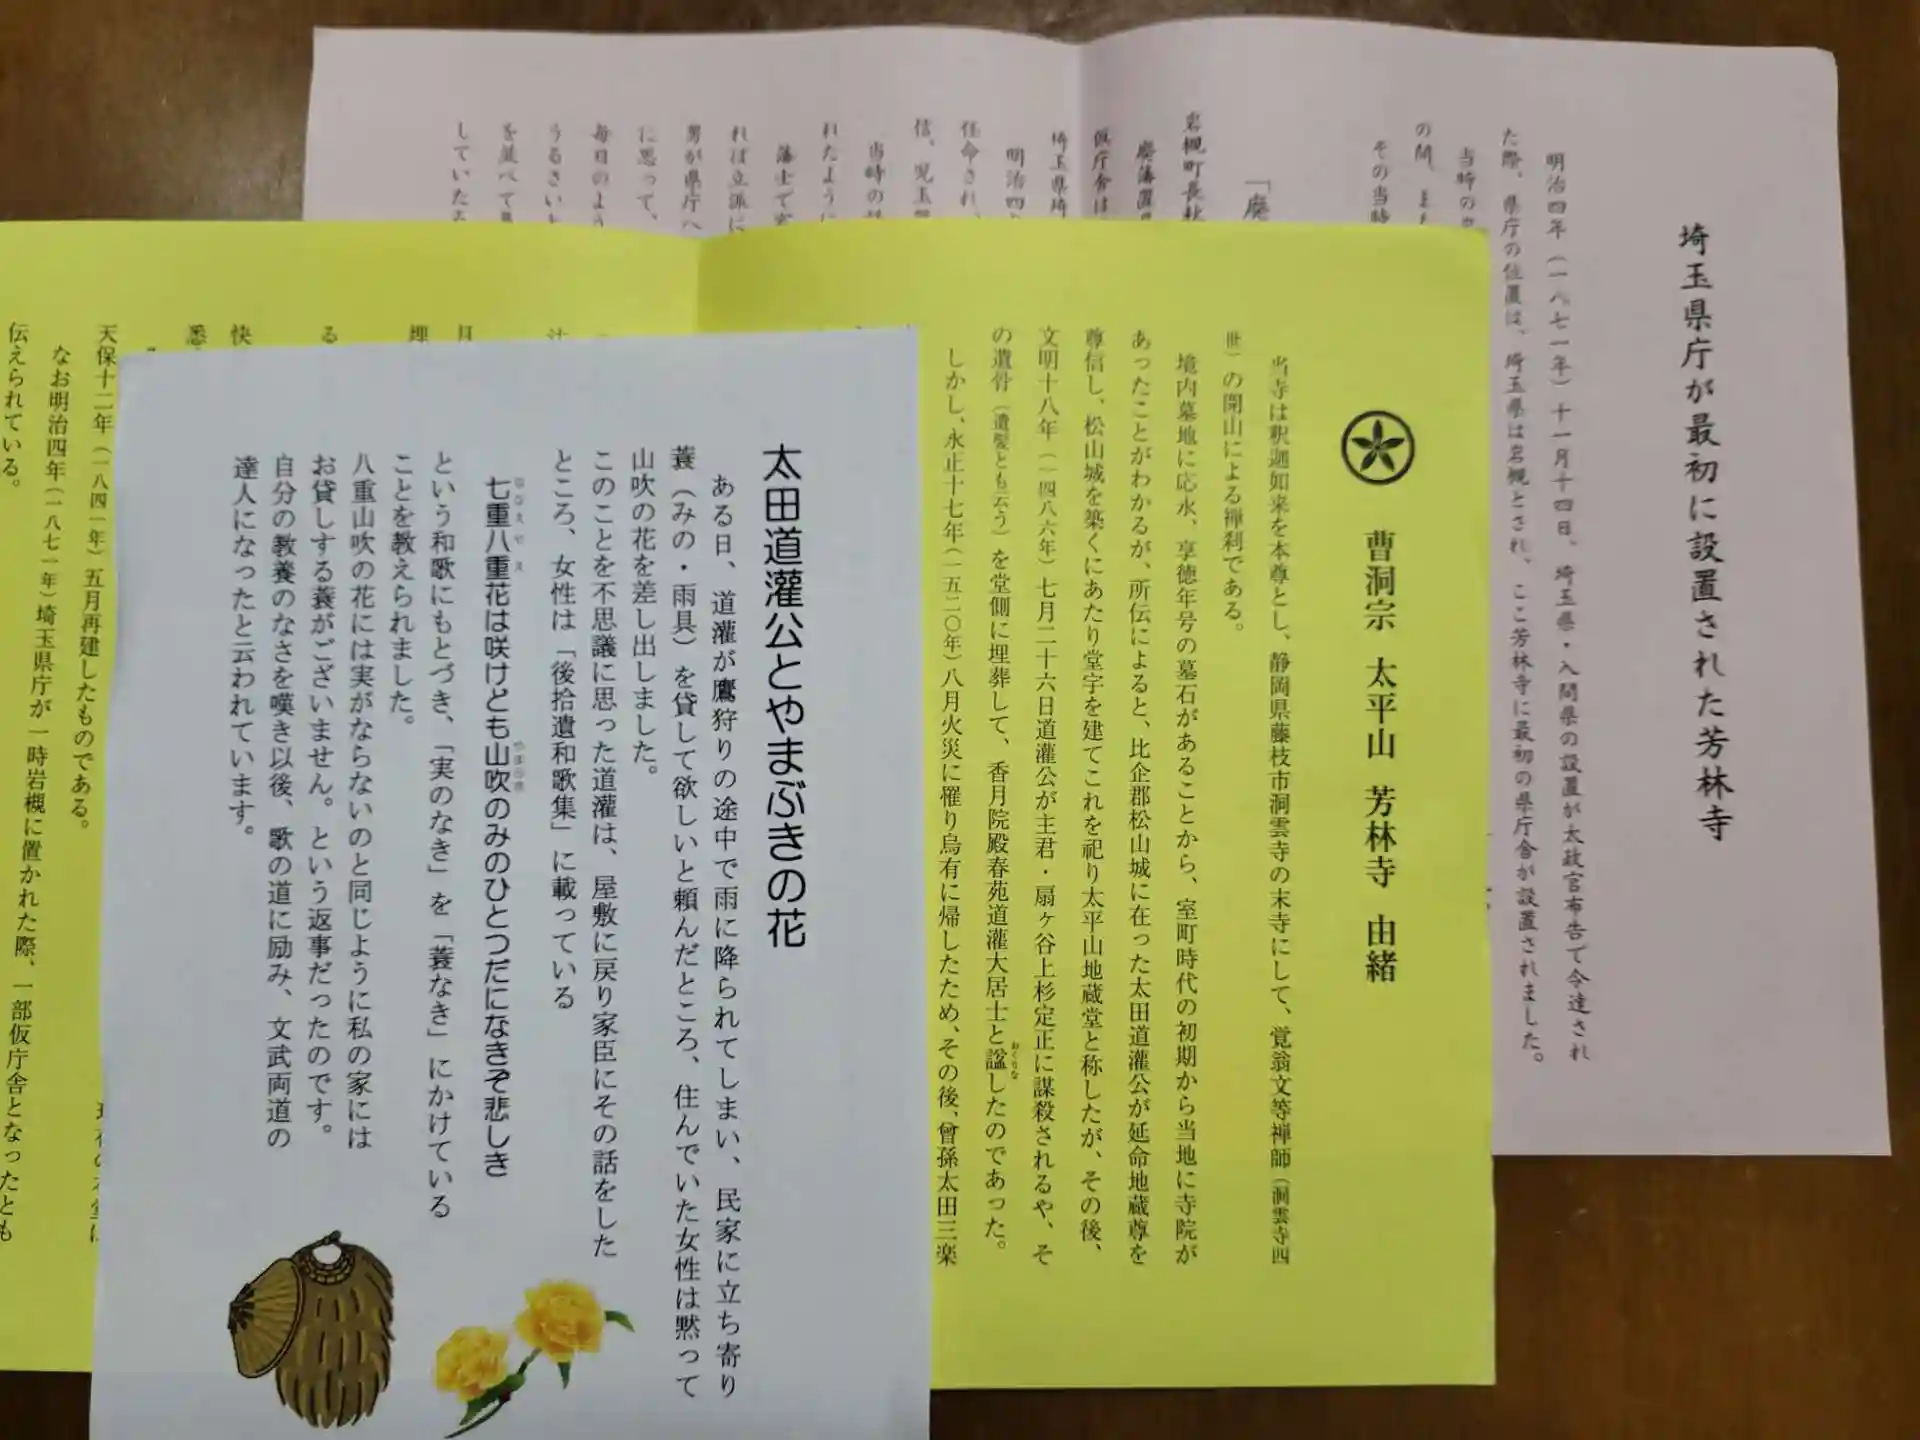 埼玉県庁が最初に設置された芳林寺
明治四年（一八七一年）十一月十四日、埼玉県・入間県の設置が太政官布告で令達され
た際、県庁の位置は、埼玉県は岩槻とされ、ここ芳林寺に最初の県庁舎が設置されました。
当時の
の間、
その当時
「廃
岩槻町長
廃藩置
仮庁舎は
埼玉県埼
明治四
任命され、
信、児玉
当時の
れたように
藩士で
れば立派に
男が県庁へ
に思って、
毎日のよう
うるさい
を並べて
していた
曹洞宗 太平山 芳林寺 由緒
当寺は釈迦如来を本尊とし、静岡県藤枝市洞雲寺の末寺にして、覚翁文等禅師（洞雲寺四
世）の開山による禅刹である。
境内墓地に応永、享徳年号の墓石があることから、室町時代の初期から当地に寺院が
あったことがわかるが、所伝によると、比企郡松山城に在った太田道灌公が延命地蔵尊を
尊信し、松山城を築くにあたり堂宇を建てこれを祀り太平山地蔵堂と称したが、その後、
文明十八年（一四八六年）七月二十六日道灌公が主君・扇ヶ谷上杉定正に謀殺されるや、そ
の遺骨（遺髪とも云う）を堂側に埋葬して、香月院殿春苑道灌大居士と諡したのであった。
しかし、永正十七年（一五二〇年）八月火災に罹り烏有に帰したため、その後、曾孫太田三楽
月
埋
る
快
悉
天保十二年（一八四一年）五月再建したものである。
なお明治四年（一八七一年）埼玉県庁が一時岩槻に置かれた際、一部仮庁舎となったとも
伝えられている。
太田道灌公とやまぶきの花
ある日、道灌が鷹狩りの途中で雨に降られてしまい、民家に立ち寄り
蓑（みの・雨具）を貸して欲しいと頼んだところ、住んでいた女性は黙って
山吹の花を差し出しました。
このことを不思議に思った道灌は、屋敷に戻り家臣にその話をした
ところ、女性は「後拾遺和歌集」に載っている
七重八重花は咲けども山吹のみのひとつだになきぞ悲しき
という和歌にもとづき、「実のなき」を「蓑なき」にかけている
ことを教えられました。
八重山吹の花には実がならないのと同じように私の家には
お貸しする蓑がございません。という返事だったのです。
自分の教養のなさを嘆き以後、歌の道に励み、文武両道の
達人になったと云われています。